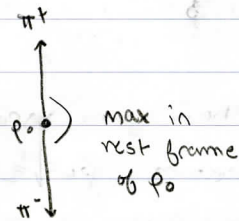 π+
ρo
max in
rest frame
of ρo
π-